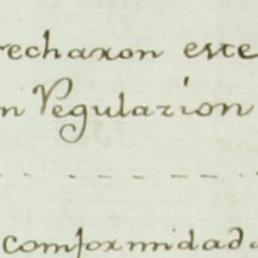 rechaxon este
n Regulazion
conformidad.